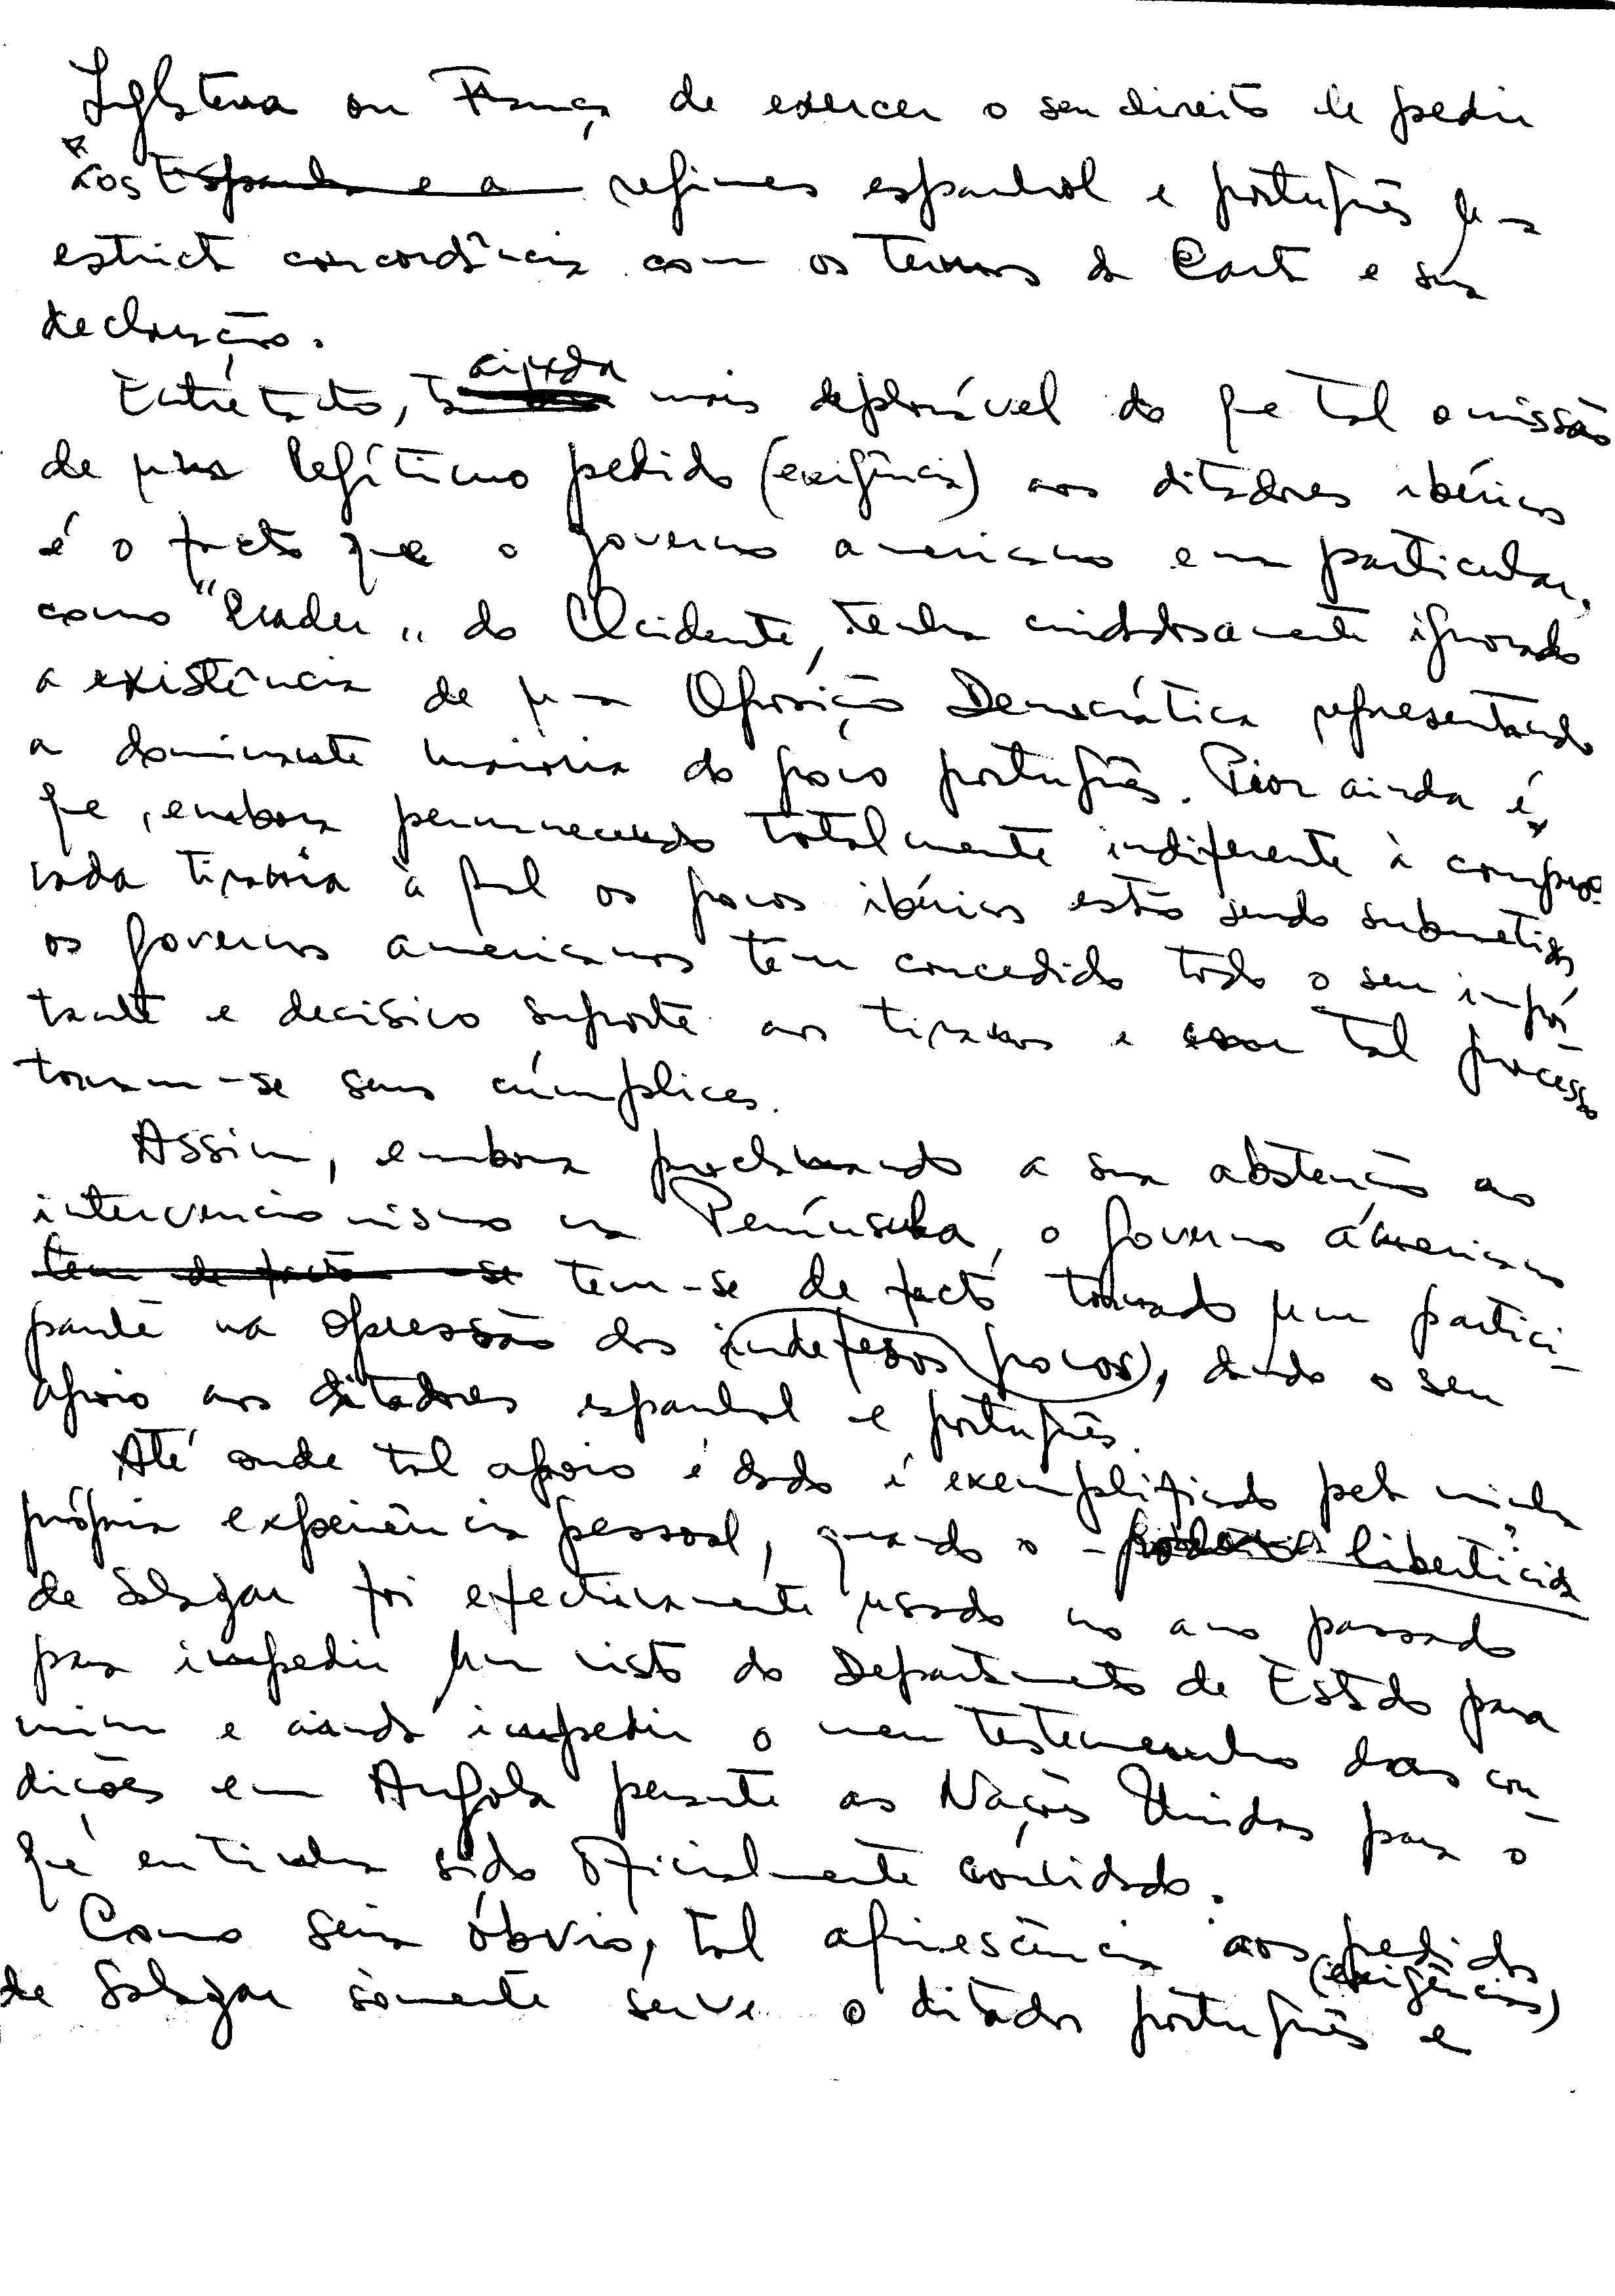 Inglaterra ou França de exercer o seu direito de pedir
aos Espanha e a regimes espanhol e português uma
estricta concordância com os termos da Carta e sua
declaração.
Entretanto, ainda mais deplorável do que tal omissão
de um legítimo pedido (exigência) aos ditadores ibéricos
é o facto que o governo americano em particular,
como "leader" do Ocidente, tenha cuidadosamente ignorado
a existência de uma Oposição Democrática representando
a dominante maioria do povo português. Pior ainda é
que, embora permanecendo totalmente indiferente à compro-
vada tirania à qual os povos ibéricos estão sendo submetidos
os governos americanos tem concedido todo o seu impor-
tante e decisivo suporte aos tiranos e com tal processo
tornam-se seus cúmplices.
Assim, embora proclamando a sua abstenção ao
intervencionismo na Península, o governo americano
tem de facto -se tem-se de facto tornado um partici-
pante na opressão dos indefesos povos, dando o seu
apoio aos ditadores espanhol e português.
Até onde tal apoio é dado é exemplificado pela minha
própria experiência pessoal, quando o liberticida
de Salazar foi efectivamente usado no ano passado
para impedir um visto do Departamento de Estado para
mim e ainda impedir o meu testemunho das con-
dições em Angola perante as Nações Unidas para o
que eu tinha sido oficialmente convidado.
Como seria óbvio, tal aquiescência aos pedidos
(exigências)
de Salazar sòmente serve o ditador português e